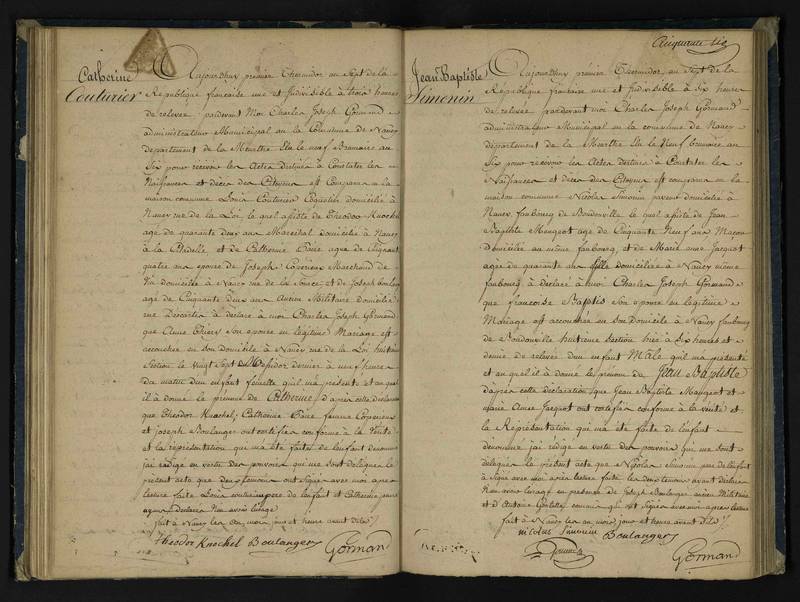 Catherine
Couturier
Aujourd'huy premier Thermidor an Sept de la
Republique francaise une et Indivisible à trois heures
de relevée, pardevant Moi Charles Joseph Gormand
administrateur Municipal en la Commune de Nancy
département de la Meurthe Elu le neuf Brumaire an
Six pour recevoir les Actes destinés à Constater les
Naissances et décès des Citoyens est Comparu en la
maison commune Louis Couturier Coquetier domicilié à
Nancy rue de la Loi, le quel assisté de Theodor Knochel
age de quarante deux ans Marechal domicilié à Nancy
à la Citadelle et de Catherine Poire agee de Cinquant
quatre ans epouse de Joseph Marchand de
Vin domicilié à Nancy rue de la Source, et de Joseph Boulanger
age de Cinquante Deux ans Ancien Militaire domicilié
rue à déclaré à moi Charles Joseph Gormand
que Anne Thiery son epouse en légitime Mariage est
accouchée en son Domicile à Nancy rue de la Loi huitième
Section le vingt Sept Messidor dernier à neuf heures
du matin d'un enfant femelle quil ma présenté et au quel
il à donné le prenom de Catherine d'après cette déclaration
que Theodor Knochel, Catherine Poire femme
et Joseph Boulanger ont certifiés conforme à la Verité
et la représentation qui ma été faite de l'enfant dénommé
jai rédigé en vertu des pouvoirs qui me sont délégués le
présent acte que des temoins ont Signé avec moi après
lecture faite Louis couturier pere de l'enfant et Catherine poire
ayant Declaré Non avoir l'usage
fait à Nancy les an, mois, jour et heure avant dits
Theodor Knochel Boulanger
Gormand
Cinquante six
Jean Baptiste
Simonin
Aujourd'huy premier Thermidor an Sept de la
Republique francaise une et Indivisible à Six heures
de relevée pardevant moi Charles Joseph Gormand
administrateur Municipal en la commune de Nancy
département de la Meurthe Elu le Neuf Brumaire an
Six pour recevoir les Actes destinés à Constater les
Naissances et décès des Citoyens est comparu en la
maison commune Nicolas Simonin domicilié à
Nancy, faubourg de Boudonville le quel assisté de Jean
Baptiste Mangeot age de Cinquante Neuf ans Macon
Domicilié au même faubourg et de Marie anne Jacquot
agée de quarante ans fille domiciliée à Nancy même
faubourg à déclaré à moi Charles Joseph Gormand
que francoise Baptis son epouse en légitime
Mariage est accouchée en son domicile à Nancy faubourg
de Boudonville huitieme Section hier à Six heures et
demie de relevée d'un enfant Male quil ma présenté
et au quel il à donné le prénom de Jean Baptiste
d'après cette déclaration que Jean Baptiste Mangeot et
Marie Anne Jacquot ont certifiés conforme à la verité et
la Représentation qui ma été faite de l'enfant
dénommé jai rédigé en vertu des pouvoirs qui me sont
délégués le présent acte que Nicolas Simonin pere de l'enfant
à Signé avec moi après lecture faite les deux temoins ayant déclaré
Non avoir l'usage en presence de Joseph Boulanger ancien Militaire
et d'Antoine qui ont Signés avec moi après lecture
fait à Nancy les an, mois, jour et heure avant dits
nicolas Simonin Boulanger
Gormand